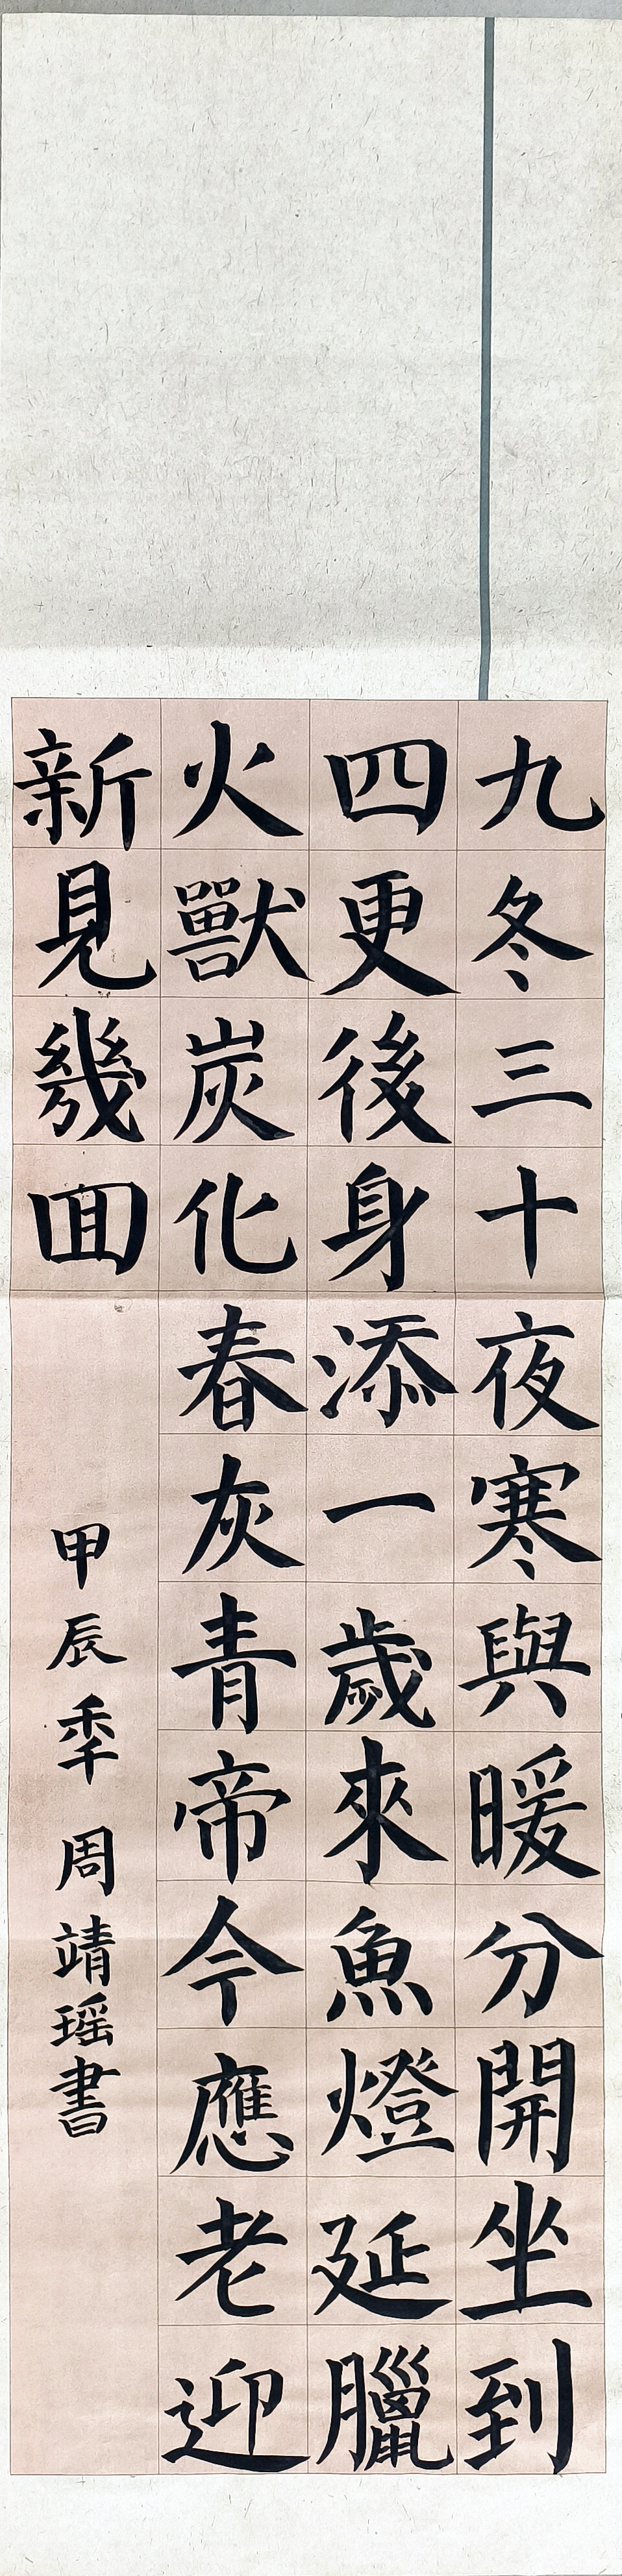 九冬三十夜寒與暖分開坐到
四更後身添一歲來魚燈延臘
火獸炭化春灰青帝今應老迎
新見幾囬
甲辰秊 周靖瑶書